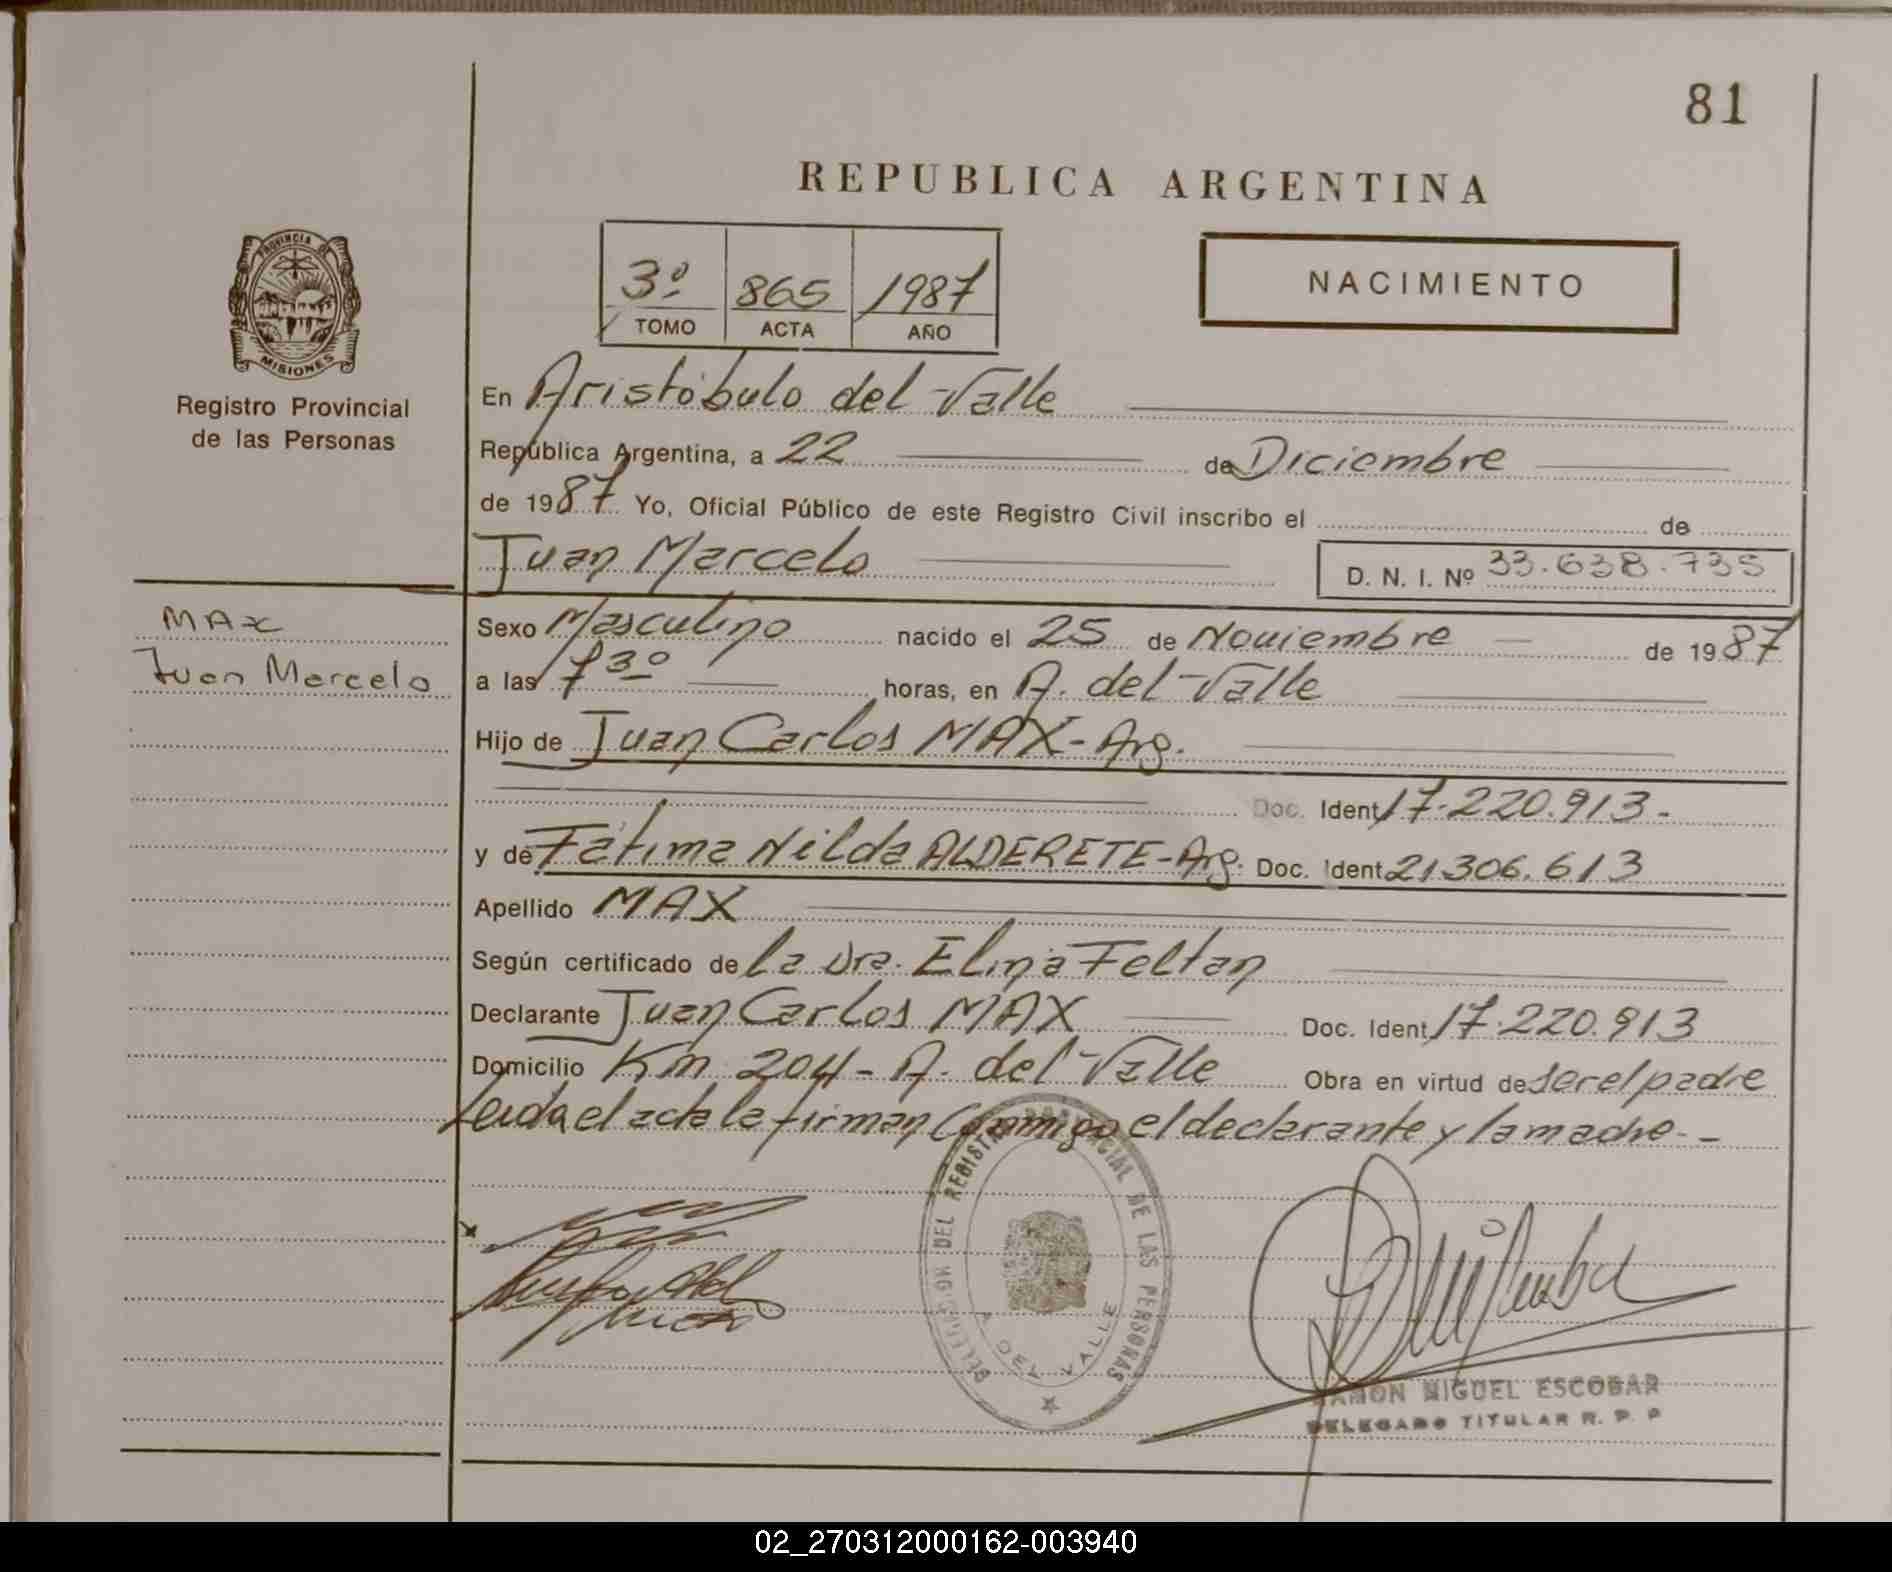 81
REPUBLICA ARGENTINA
PROVINCIA DE
MISIONES
Registro Provincial
de las Personas
3º 865 1987
TOMO ACTA AÑO
NACIMIENTO
En Aristóbulo del Valle
República Argentina, a 22 de Diciembre
de 1987 Yo, Oficial Público de este Registro Civil inscribo el de
Juan Marcelo D. N. I. Nº 33.638.735
MAX
Juan Marcelo
Sexo Masculino nacido el 25 de Noviembre de 1987
a las 7 30 horas, en A. del Valle
Hijo de Juan Carlos MAX - Arg.
Doc. Ident 17.220.913.-
y de Fátima Nilda ALDERETE - Arg. Doc. Ident 21.306.613
Apellido MAX
Según certificado de la Dra. Elina Feltan
Declarante Juan Carlos MAX Doc. Ident 17.220.913
Domicilio Km 204 - A. del Valle Obra en virtud de ser el padre
Leida el acta la firman conmigo el declarante y la madre.-
DELEGACION DEL REGISTRO PROVINCIAL DE LAS PERSONAS
A. DEL VALLE
RAMON MIGUEL ESCOBAR
DELEGADO TITULAR R. P. P
02_270312000162-003940